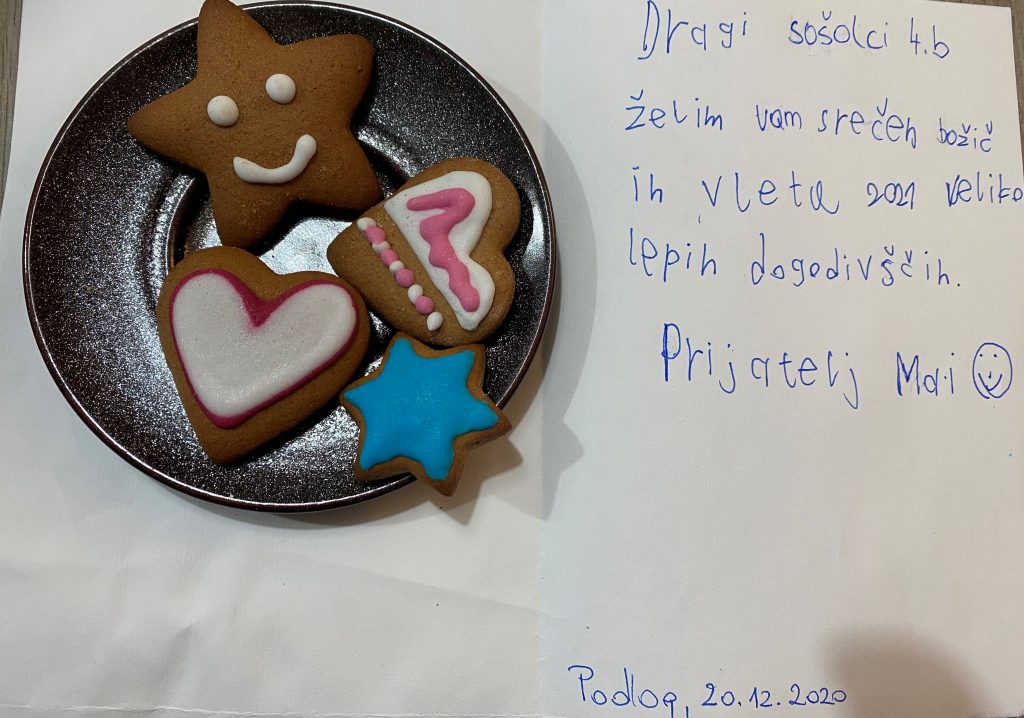 Dragi sošolci 4.b
želim vam srečen božič
in v letu 2021 veliko
lepih dogodivščin.
Prijatelj Mai
Podlog, 20.12.2020